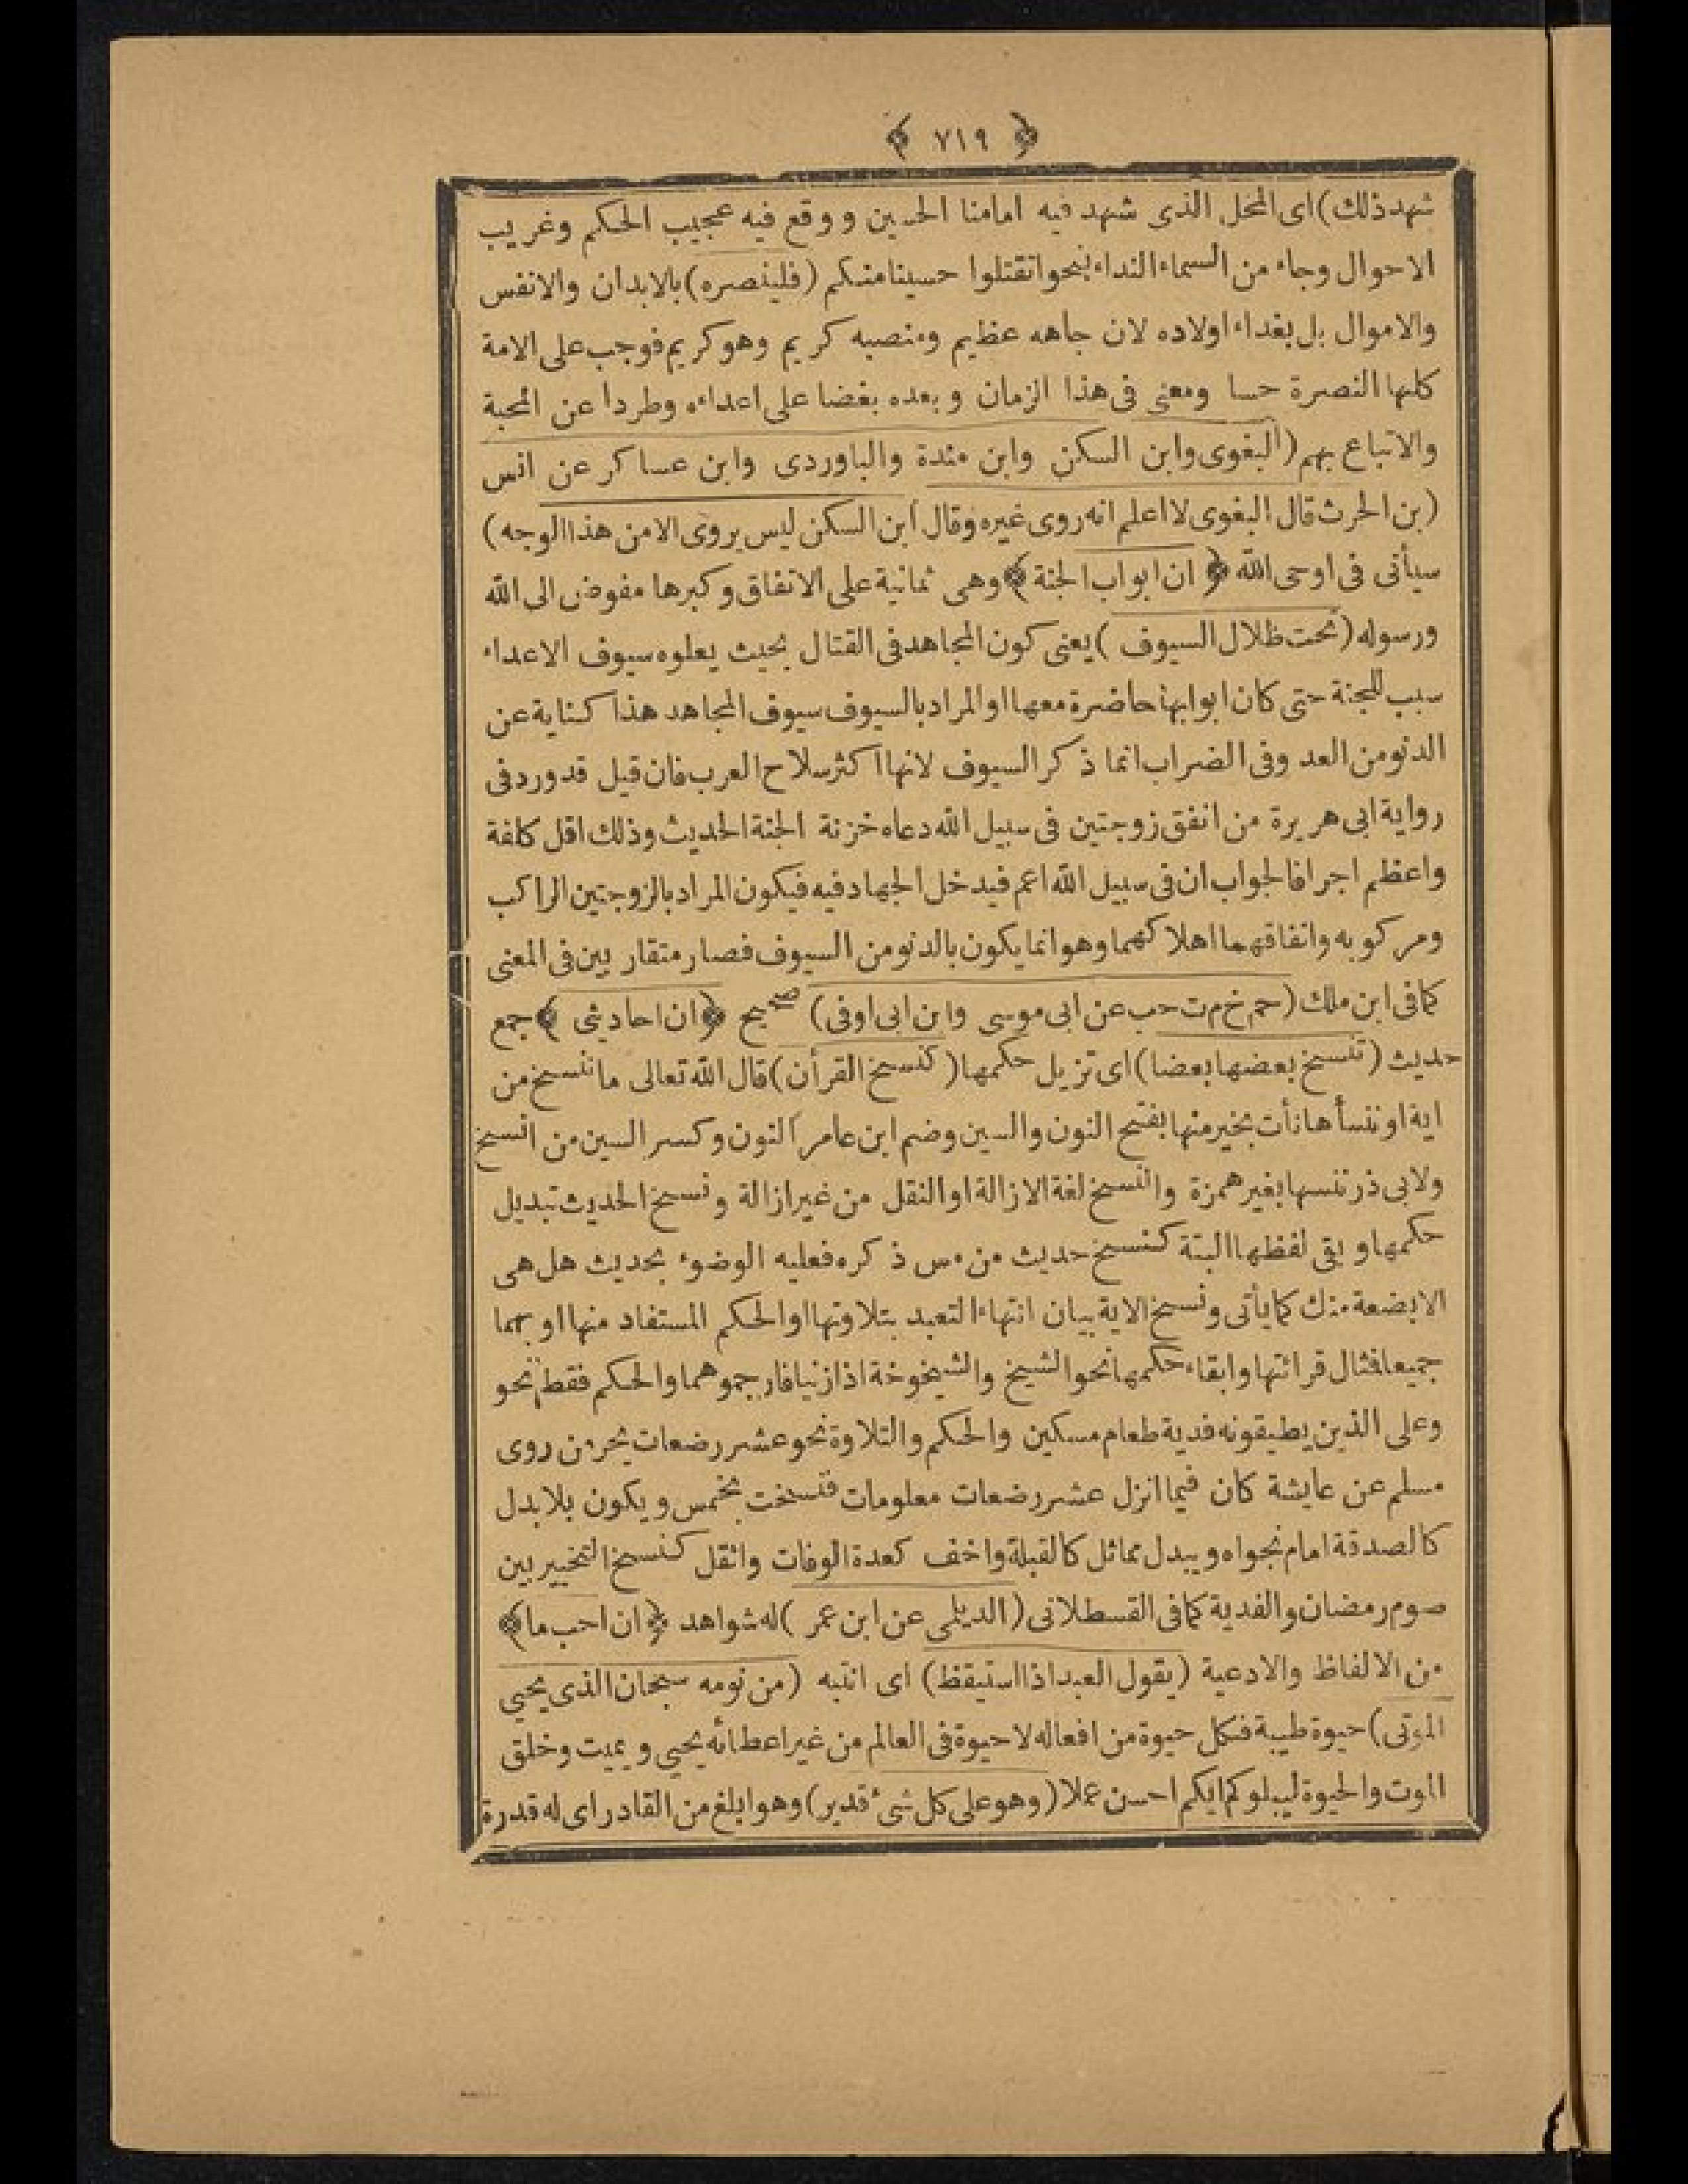 ﴿ ٧١٩ ﴾
شهد ذلك) اى المحل الذى شهد فيه امامنا الحسين ووقع فيه عجيب الحكم وغريب
الاحوال وجاء من السماء النداء بنحو انقتلوا حسينا منكم (فلينصره) بالابدان والانفس
والاموال بل بغداء اولاده لان جاهه عظيم ومنصبه كريم وهو كريم فوجب على الامة
كلها النصرة حسا ومعنى فى هذا الزمان وبعده بغضا على اعداءه وطردا عن المحبة
والاتباع بهم (البغوى وابن السكن وابن مندة والباوردى وابن عساكر عن انس
(بن الحرث قال البغوى لا اعلم انه روى غيره وقال ابن السكن ليس يروى الامن هذا الوجه)
سيأتى فى اوحى الله ﴿ ان ابواب الجنة ﴾ وهى ثمانية على الاتفاق وكبرها مفوض الى الله
ورسوله (تحت ظلال السيوف) يعنى كون المجاهد فى القتال بحيث يعلوه سيوف الاعداء
سبب للجنة حتى كان ابوابها حاضرة معها او المراد بالسيوف سيوف المجاهد هذا كناية عن
الدنو من العد وفى الضراب انما ذكر السيوف لانها اكثر سلاح العرب فان قيل قد ورد فى
رواية ابى هريرة من انفق زوجتين فى سبيل الله دعاه خزنة الجنة الحديث وذلك اقل كلفة
واعظم اجرا فالجواب ان فى سبيل الله اعم فيدخل الجهاد فيه فيكون المراد بالزوجتين الراكب
ومركوبه وانفاقهما اهلاكهما وهو انما يكون بالدنو من السيوف فصار متقاربين فى المعنى
كما فى ابن ملك (حم خ م ت حب عن ابى موسى وابن ابى اوفى) صحيح ﴿ ان احاديثى ﴾ جمع
حديث (تنسخ بعضها بعضا) اى تزيل حكمها (كنسخ القرأن) قال الله تعالى ما ننسخ من
اية او ننسأها نأت بخير منها بفتح النون والسين وضم ابن عامر النون وكسر السين من انسخ
ولابى ذر ننسها بغير همزة والنسخ لغة الازالة او النقل من غير ازالة ونسخ الحديث تبديل
حكمها وبقى لفظها البتة كنسخ حديث من مس ذكره فعليه الوضوء بحديث هل هى
الا بضعة منك كما يأتى ونسخ الاية بيان انتهاء التعبد بتلاوتها او الحكم المستفاد منها او بهما
جميعا فثال قرائتها وابقاء حكمها نحو الشيخ والشيخوخة اذا زنيا فارجموهما والحكم فقط نحو
وعلى الذين يطيقونه فدية طعام مسكين والحكم والتلاوة نحو عشر رضعات يحرمن روى
مسلم عن عايشة كان فيما انزل عشر رضعات معلومات فنسخت بخمس ويكون بلا بدل
كالصدقة امام نجواه ويبدل مماثل كالقبلة واخف كعدة الوفات واثقل كنسخ التخيير بين
صوم رمضان والفدية كما فى القسطلانى (الديلمى عن ابن عمر) له شواهد ﴿ ان احب ما ﴾
من الالفاظ والادعية (يقول العبد اذا استيقظ) اى انتبه (من نومه سبحان الذى يحيى
الموتى) حيوة طيبة فكل حيوة من افعاله لا حيوة فى العالم من غير اعطائه يحيى ويميت وخلق
الموت والحيوة ليبلوكم ايكم احسن عملا (وهو على كل شئ قدير) وهو ابلغ من القادر اى له قدرة